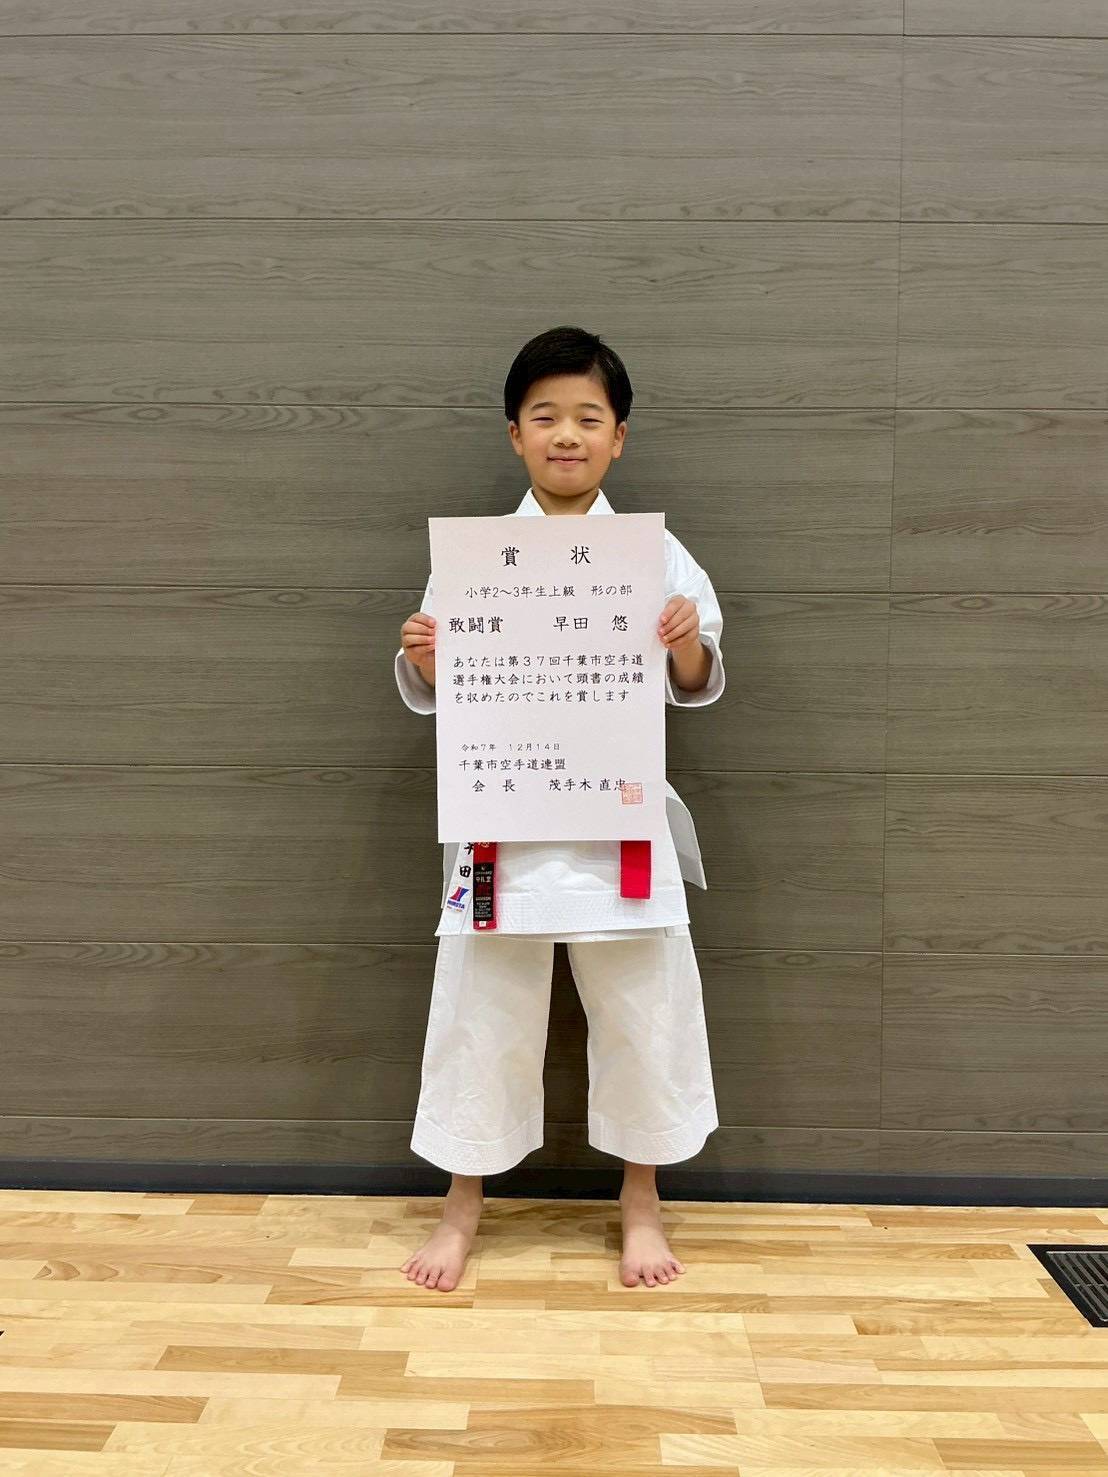 賞　状
小学2～3年生上級　形の部
敢闘賞　早田　悠
あなたは第３７回千葉市空手道
選手権大会において頭書の成績
を収めたのでこれを賞します
令和７年　１２月１４日
千葉市空手道連盟
会　長　茂手木 直忠
田